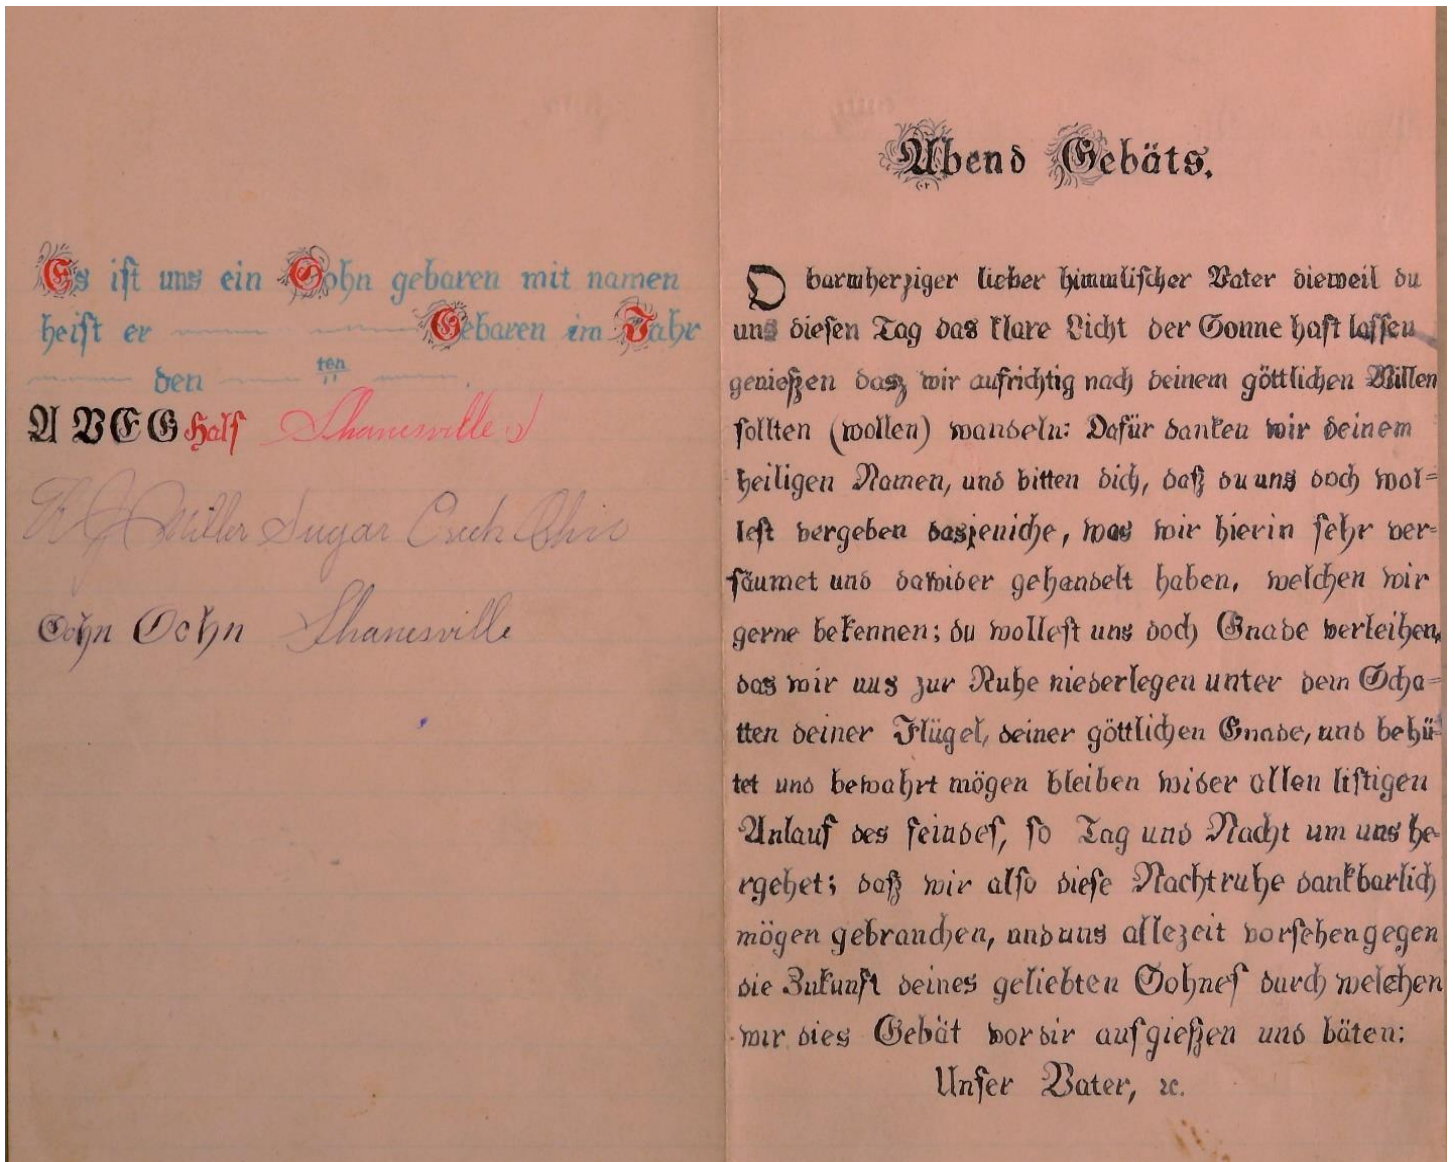 Es ist uns ein Sohn gebaren mit namen
heist er Gebaren im Jahr
den ten
A V E G Half Shanesville
Miller Sugar Creek Ohio
Sohn Shanesville
Abend Gebäts.
O barmherziger lieber himmlischer Vater dieweil du
uns diesen Tag das klare Licht der Sonne hast lassen
genießen dasz wir aufrichtig nach deinem göttlichen Willen
sollten (wollen) wandeln: Dafür danken wir deinem
heiligen Namen, und bitten dich, daß du uns doch wol=
lest vergeben dasjeniche, was wir hierin sehr ver=
säumet und dawider gehandelt haben, welchen wir
gerne bekennen; du wollest uns doch Gnade verleihen,
das wir uns zur Ruhe niederlegen unter dem Scha=
tten deiner Flügel, deiner göttlichen Gnade, und behü=
tet und bewahrt mögen bleiben wider allen listigen
Anlauf des feindes, so Tag und Nacht um uns he-
rgehet; daß wir also diese Nachtruhe dankbarlich
mögen gebrauchen, und uns allezeit vorsehen gegen
die Zukunft deines geliebten Sohnes durch welchen
wir dies Gebät vor dir aufgießen und bäten:
Unser Vater, ꝛc.